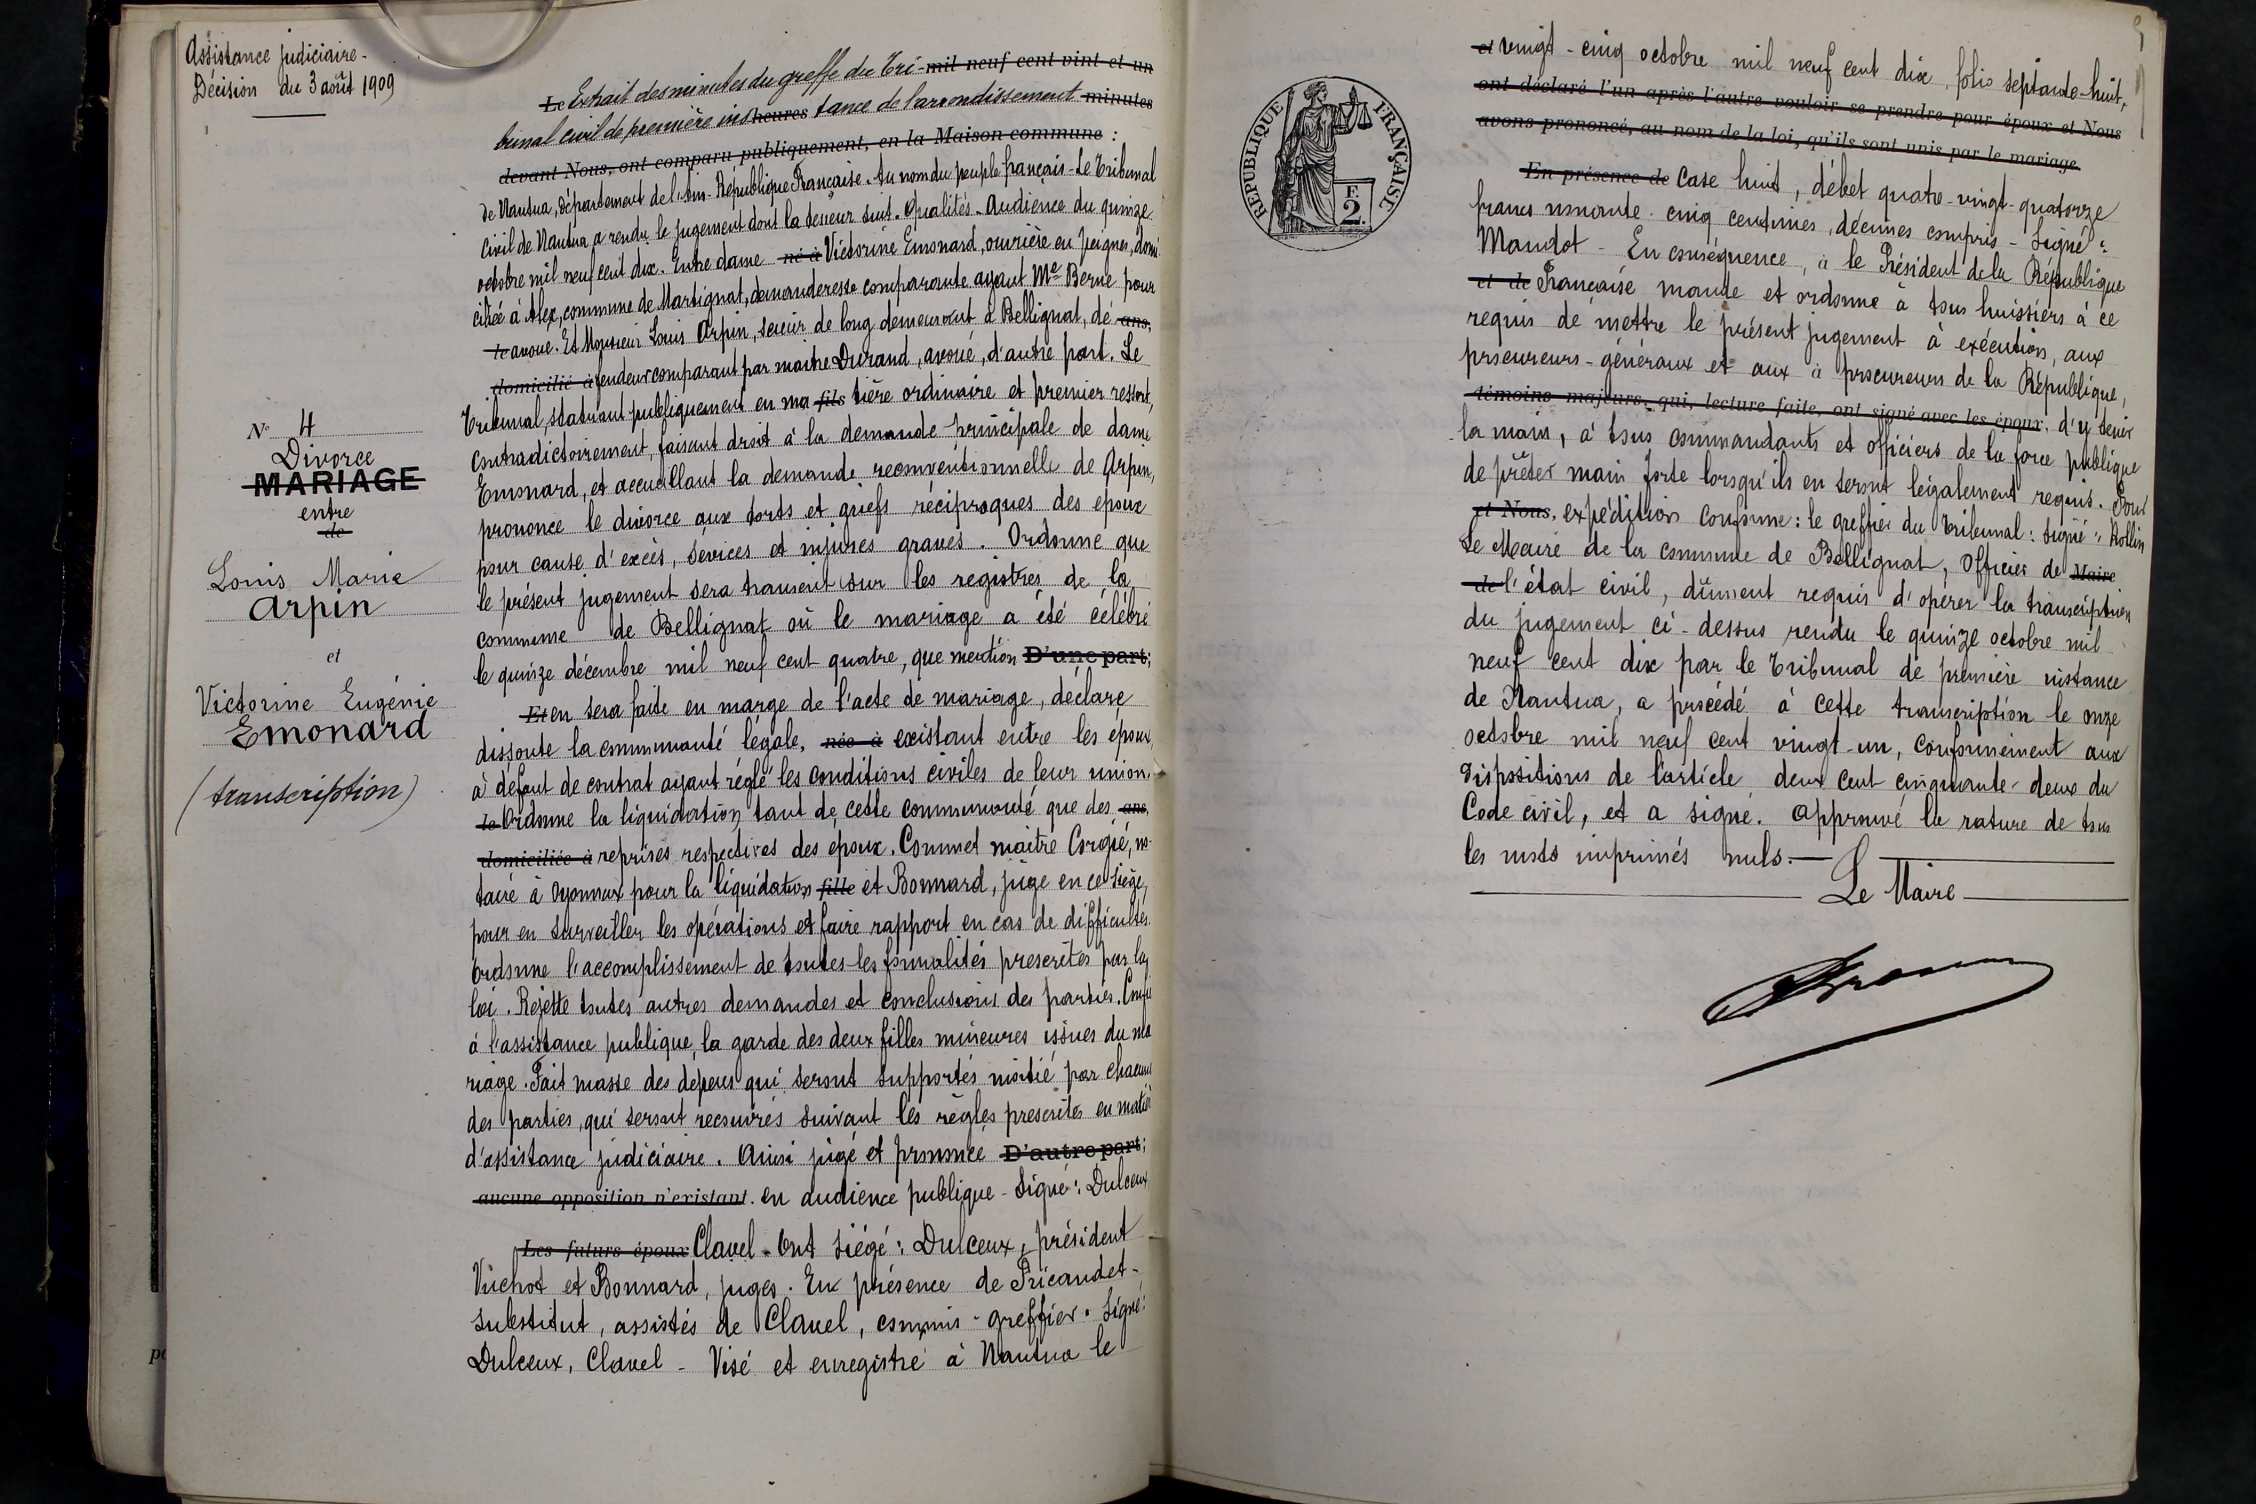 Assistance judiciaire -
Décision du 3 août 1909
N° 4
Divorce
MARIAGE
entre
de
Louis Marie
Arpin
et
Victorine Eugénie
Emonard
(transcription)
Le Extrait des minutes du greffe du Tri- mil neuf cent vint et un
bunal civil de première ins heures tance de l'arrondissement minutes
devant Nous, ont comparu publiquement, en la Maison commune :
de Nantua, département de l'Ain - République Française. Au nom du peuple français - Le Tribunal
civil de Nantua a rendu le jugement dont la teneur suit. Qualités - Audience du quinze
octobre mil neuf cent dix. Entre dame né à Victorine Emonard, ouvrière en peignes, domi-
ciliée à Alex, commune de Martignat, demanderesse comparante ayant Me Berne pour
le avoué. Et Monsieur Louis Arpin, scieur de long demeurant à Bellignat, dé ans,
domicilié à fendeur comparant par maître Durand, avoué, d'autre part. Le
Tribunal statuant publiquement en ma fils tière ordinaire et premier ressort,
contradictoirement, faisant droit à la demande principale de dame
Emonard, et accueillant la demande reconventionnelle de Arpin,
prononce le divorce aux torts et griefs réciproques des époux
pour cause d'excès, sévices et injures graves. Ordonne que
le présent jugement sera transcrit sur les registres de la
commune de Bellignat où le mariage a été célébré
le quinze décembre mil neuf cent quatre, que mention D'une part;
Et en sera faite en marge de l'acte de mariage, déclare
dissoute la communauté légale, née à existant entre les époux,
à défaut de contrat ayant réglé les conditions civiles de leur union.
le Ordonne la liquidation tant de cette communauté que des ans,
domiciliée à reprises respectives des époux. Commet maître Corgié, no-
taire à Oyonnax pour la liquidation fille et Bonnard, juge en ce siège,
pour en surveiller les opérations et faire rapport en cas de difficultés.
Ordonne l'accomplissement de toutes les formalités prescrites par la
loi. Rejette toutes autres demandes et conclusions des parties. Confie
à l'assistance publique, la garde des deux filles mineures issues du ma
riage. Fait masse des dépens qui seront supportés moitié par chacune
des parties, qui seront recouvrés suivant les règles prescrites en matière
d'assistance judiciaire. Ainsi jugé et prononcé D'autre part;
aucune opposition n'existant. en audience publique - Signé : Dulceux
Les futurs époux Clavel - Ont siégé : Dulceux, président
Vuchot et Bonnard, juges. En présence de Pricaudet -
substitut, assistés de Clavel, commis - greffier. Signé :
Dulceux, Clavel - Visé et enregistré à Nantua le
RÉPUBLIQUE FRANÇAISE
F.
2.
et vingt - cinq octobre mil neuf cent dix, folio septante-huit,
ont déclaré l'un après l'autre vouloir se prendre pour époux et Nous
avons prononcé, au nom de la loi, qu'ils sont unis par le mariage.
En présence de Case huit, débet quatre-vingt-quatorze
francs nonante-cinq centimes, décimes compris - Signé :
Maudot - En conséquence, à le Président de la République
et de Française mande et ordonne à tous huissiers à ce
requis de mettre le présent jugement à exécution, aux
procureurs-généraux et aux à procureurs de la République,
témoins majeurs, qui, lecture faite, ont signé avec les époux. d'y tenir
la main, à tous commandants et officiers de la force publique
de prêter main forte lorsqu'ils en seront légalement requis. Pour
et Nous, expédition conforme : le greffier du Tribunal : signé : Rollin
Le Maire de la commune de Bellignat, Officier de Maire
de l'état civil, dûment requis d'opérer la transcription
du jugement ci-dessus rendu le quinze octobre mil
neuf cent dix par le Tribunal de première instance
de Nantua, a procédé à cette transcription le onze
octobre mil neuf cent vingt-un, conformément aux
dispositions de l'article deux cent cinquante-deux du
Code civil, et a signé. Approuvé la rature de tous
les mots imprimés nuls.
Le Maire